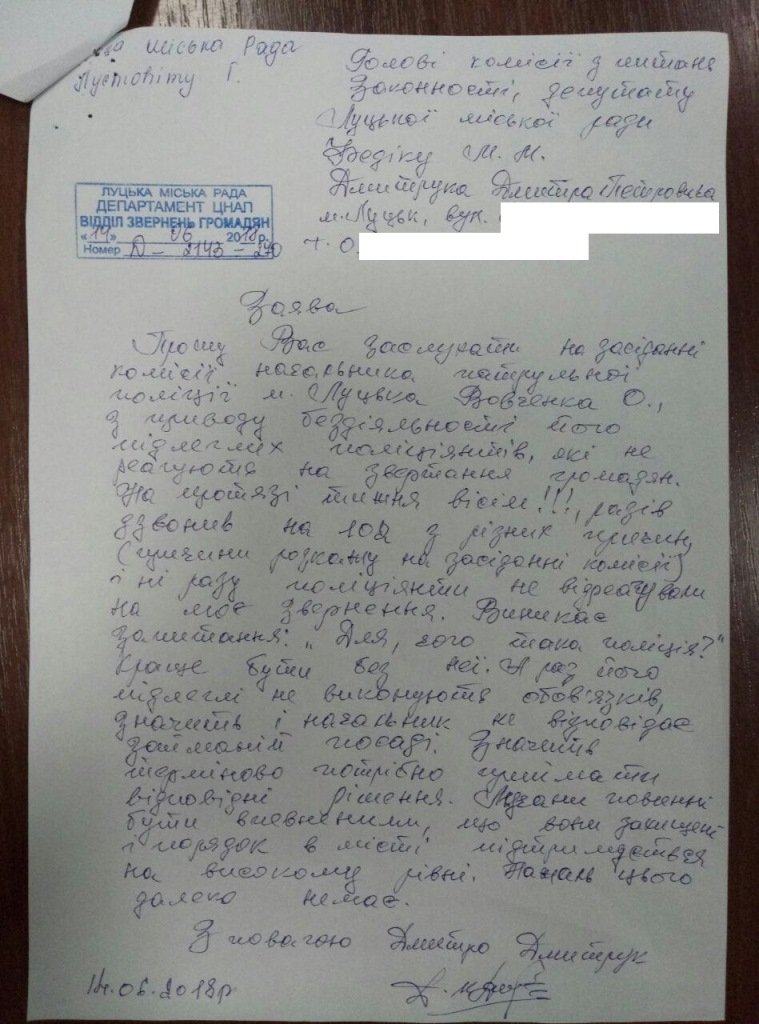 міська Рада
Пустовіту Г.
Голові комісії з питань
Законності, депутату
Луцької міської ради
Федіку М. М.
Дмитрука Дмитра Петровича
м. Луцьк, вул.
т. 0
ЛУЦЬКА МІСЬКА РАДА
ДЕПАРТАМЕНТ ЦНАП
ВІДДІЛ ЗВЕРНЕНЬ ГРОМАДЯН
«14» 06 2018 р.
Номер Д - 2143 - 270
Заява
Прошу Вас заслухати на засіданні
комісії начальника патрульної
поліції м. Луцька Вовченка О.,
з приводу бездіяльності його
підлеглих поліціянтів, які не
реагують на звертання громадян.
На протязі тижня вісім!!!, разів
дзвонив на 102 з різних причин,
(причини розкажу на засіданні комісії)
і ні разу поліціянти не відреагували
на моє звернення. Виникає
запитання: „Для, чого така поліція?"
Краще бути без неї. А раз його
підлеглі не виконують обов'язків,
значить і начальник не відповідає
займаній посаді. Значить
терміново потрібно приймати
відповідні рішення. повинні
бути впевненими, що вони захищені
і порядок в місті підтримується
на високому рівні. Нажаль цього
далеко немає.
З повагою Дмитро Дмитрук
14.06.2018р